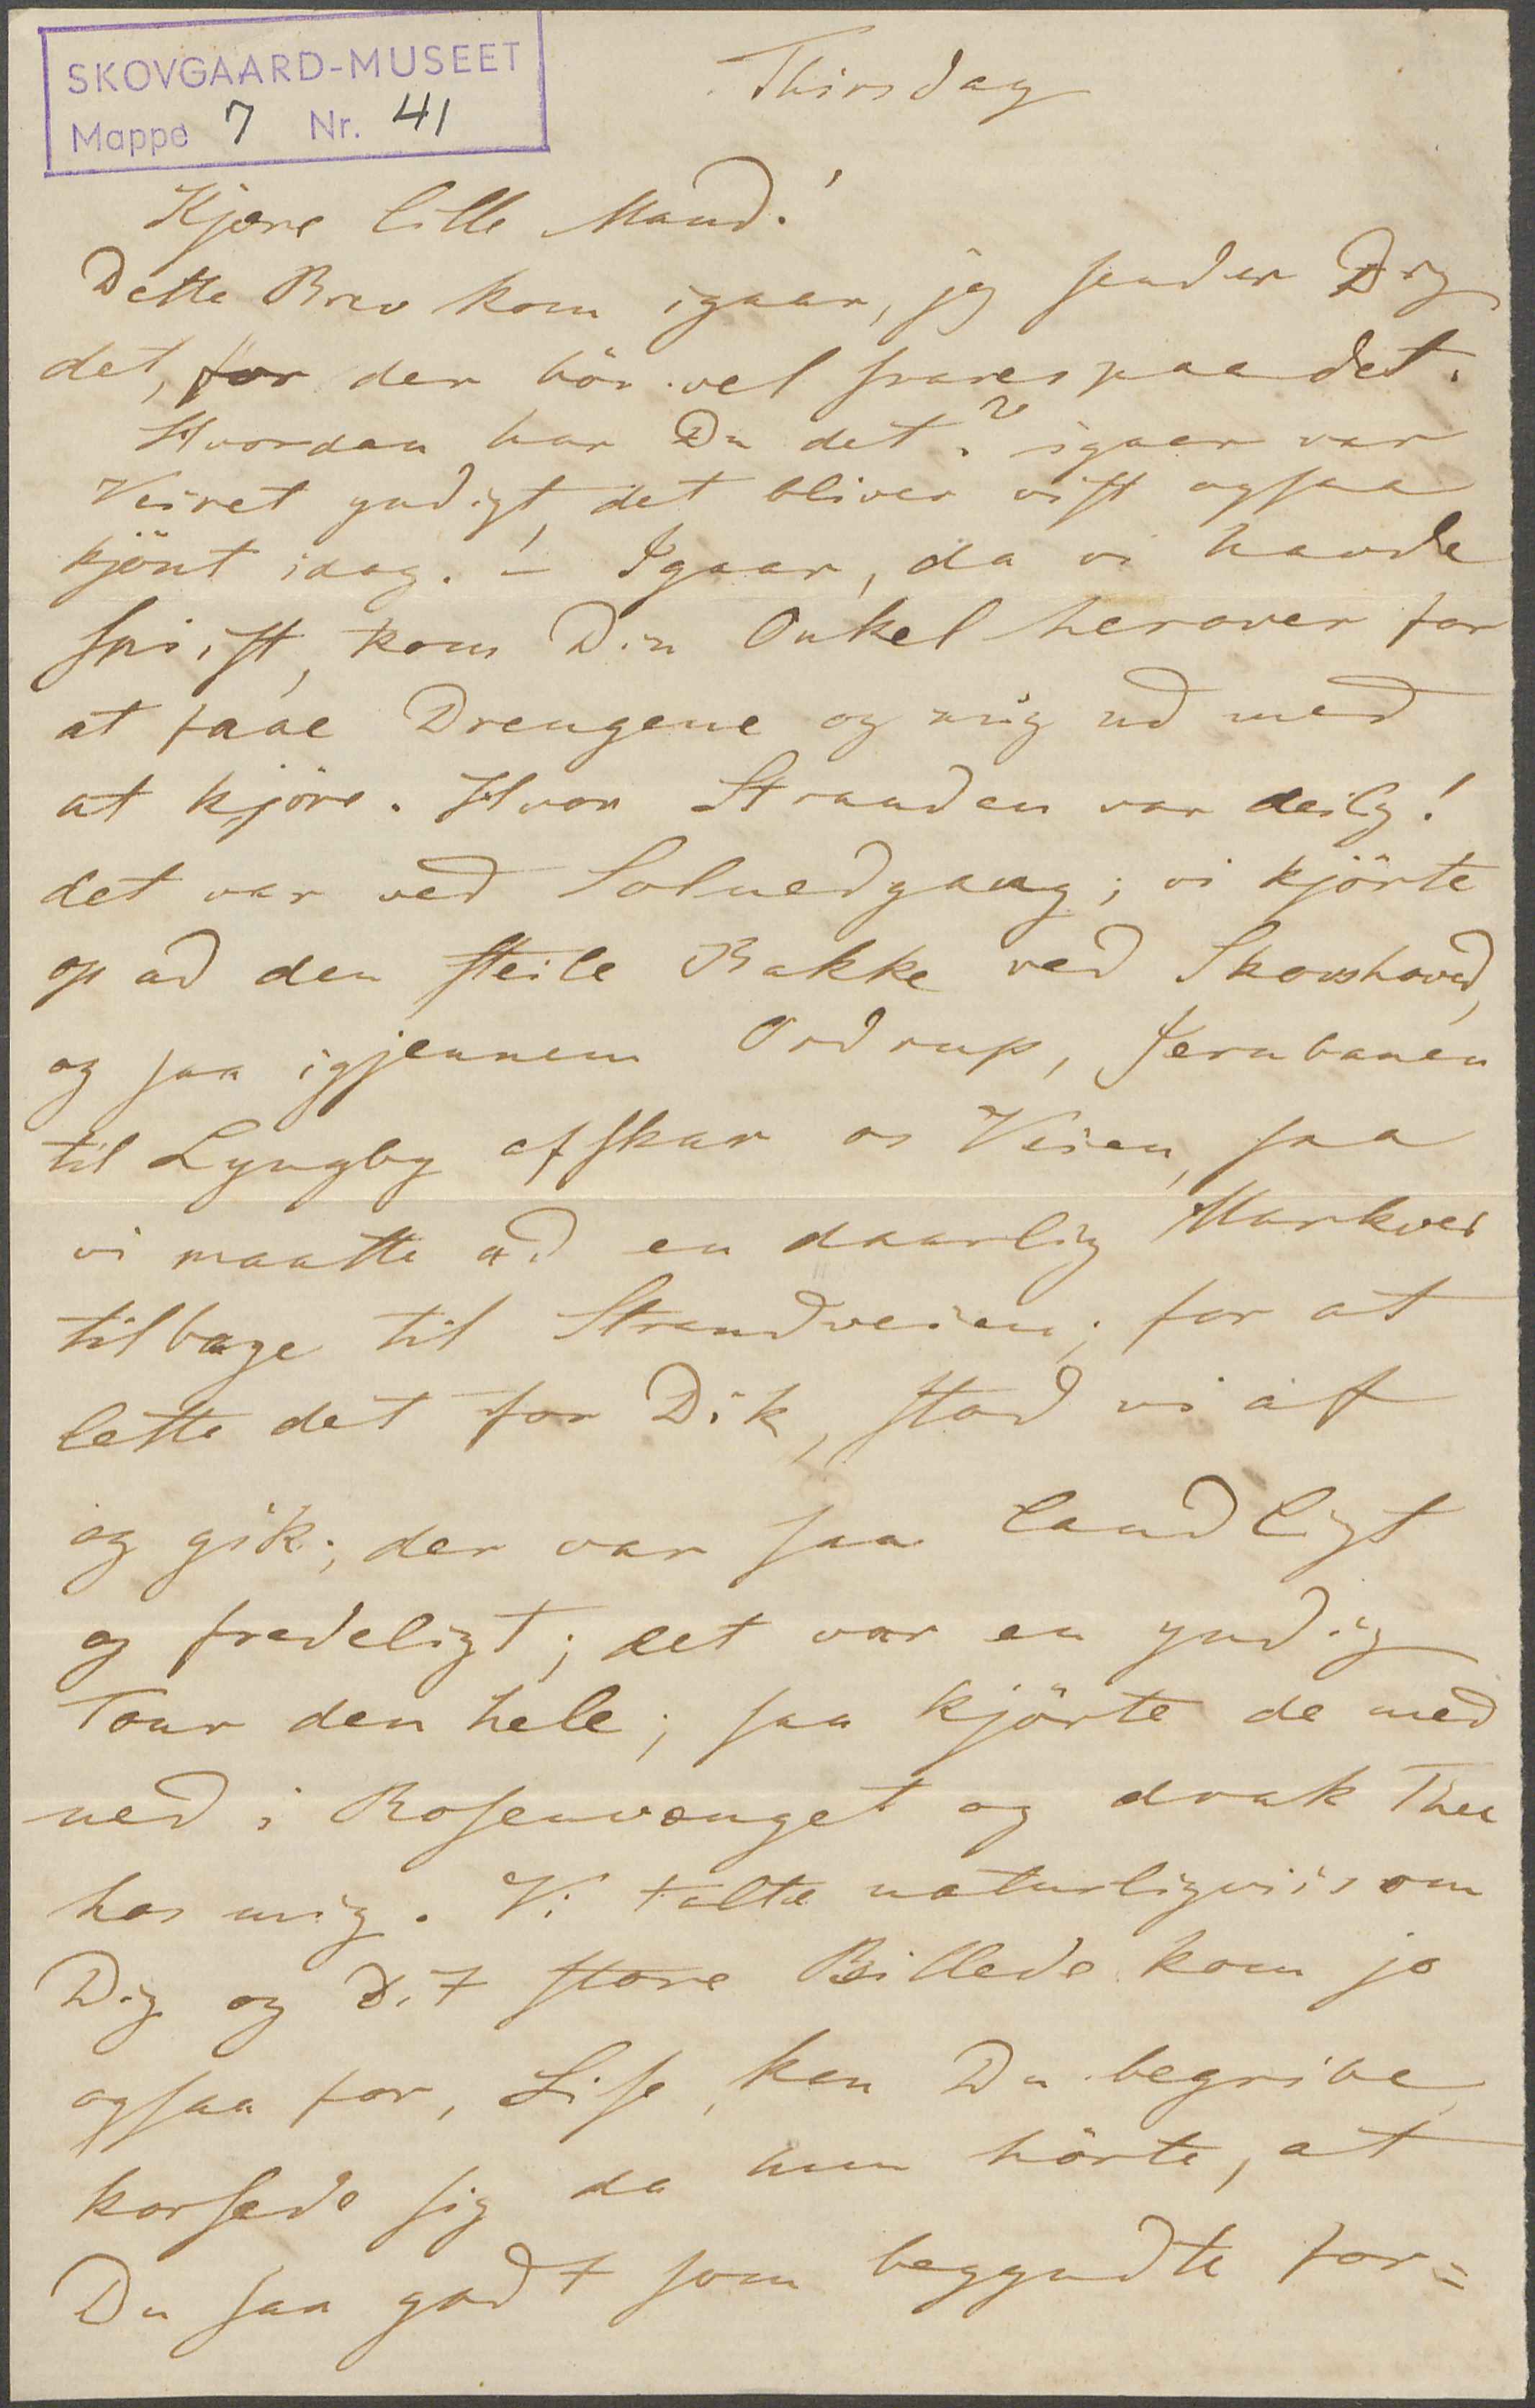 SKOVGAARD-MUSEET
Mappe 7 Nr. 41
Thirsdag
Kjære lille Mand!
Dette Brev kom igaar, jeg sender Dig
det, for der bör vel svares paa det.
Hvordan har Du det? igaar var
Veiret yndigt, det bliver vist ogsaa
kjönt idag. – Igaar, da vi havde
spiist, kom Din Onkel herover for
at faae Drengene og mig ud med
at kjöre. Hvor Stranden var deilig!
det var ved Solnedgang; vi kjörte
op ad den steile Bakke ved Skovshoved,
og saa igjennem Ordrup, Jernbanen
til Lyngby afskar os Veien, saa
vi maatte ad en daarlig Markvei
tilbage til Strandveien; for at
lette det for Dik, stod vi af
og gik; der var saa landligt
og fredeligt; det var en yndig
Tour den hele; saa kjörte de med
ned i Rosenvænget og drak Thee
hos mig. Vi talte naturligviis om
Dig og Dit store Billede kom jo
ogsaa for, Lise, kan Du begribe
korsede sig da hun hörte, at
Du saa godt som begyndte for=